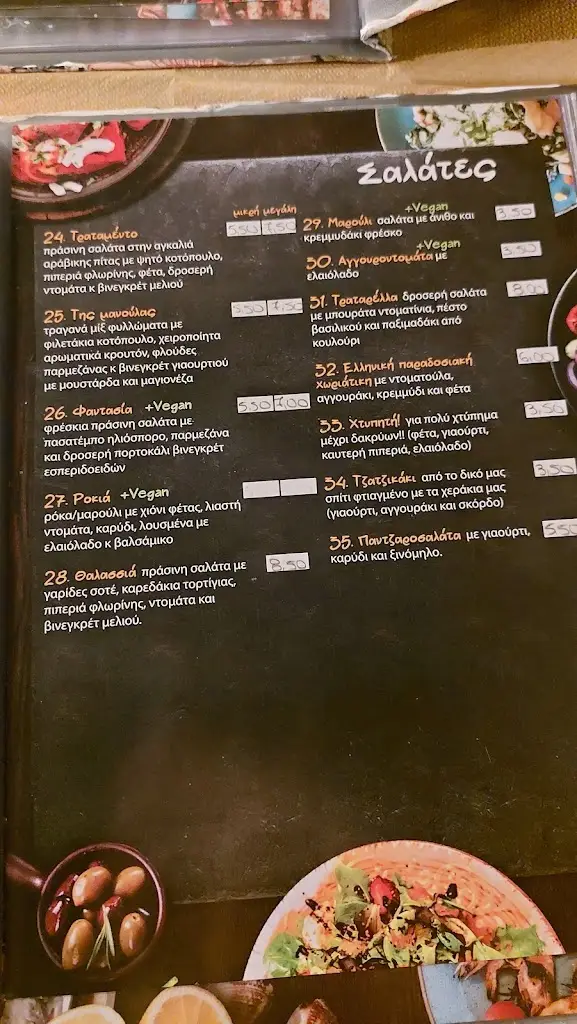 Σαλάτες
μικρή μεγάλη
24. Τραταμέντο 5.50 7.50
πράσινη σαλάτα στην αγκαλιά
αράβικης πίτας με ψητό κοτόπουλο,
πιπεριά φλωρίνης, φέτα, δροσερή
ντομάτα κ βινεγκρέτ μελιού
25. Της μανούλας 5.50 7.50
τραγανά μίξ φυλλώματα με
φιλετάκια κοτόπουλο, χειροποίητα
αρωματικά κρουτόν, φλούδες
παρμεζάνας κ βινεγκρέτ γιαουρτιού
με μουστάρδα και μαγιονέζα
26. Φαντασία +Vegan 5.50 7.00
φρέσκια πράσινη σαλάτα με
πασατέμπο ηλιόσπορο, παρμεζάνα
και δροσερή πορτοκάλι βινεγκρέτ
εσπεριδοειδών
27. Ροκιά +Vegan
ρόκα/μαρούλι με χιόνι φέτας, λιαστή
ντομάτα, καρύδι, λουσμένα με
ελαιόλαδο κ βαλσάμικο
28. Θαλασσιά πράσινη σαλάτα με 8.50
γαρίδες σοτέ, καρεδάκια τορτίγιας,
πιπεριά φλωρίνης, ντομάτα και
βινεγκρέτ μελιού.
+Vegan
29. Μαρούλι σαλάτα με άνιθο και 3.50
κρεμμυδάκι φρέσκο
+Vegan
30. Αγγουροντομάτα με 3.50
ελαιόλαδο
31. Τραταρέλλα δροσερή σαλάτα 8.00
με μπουράτα ντοματίνια, πέστο
βασιλικού και παξιμαδάκι από
κουλούρι
32. Ελληνική παραδοσιακή 6.00
χωριάτικη με ντοματούλα,
αγγουράκι, κρεμμύδι και φέτα
33. Χτυπητή! για πολύ χτύπημα 3.50
μέχρι δακρύων!! (φέτα, γιαούρτι,
καυτερή πιπεριά, ελαιόλαδο)
34. Τζατζικάκι από το δικό μας 3.50
σπίτι φτιαγμένο με τα χεράκια μας
(γιαούρτι, αγγουράκι και σκόρδο)
35. Παντζαροσαλάτα με γιαούρτι, 5.50
καρύδι και ξινόμηλο.